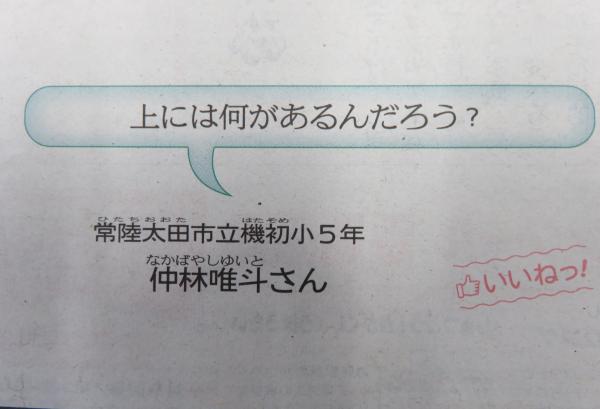 上には何があるんだろう？
ひたちおおた はたぞめ
常陸太田市立機初小５年
なかばやしゆいと
仲林唯斗さん
いいねっ!